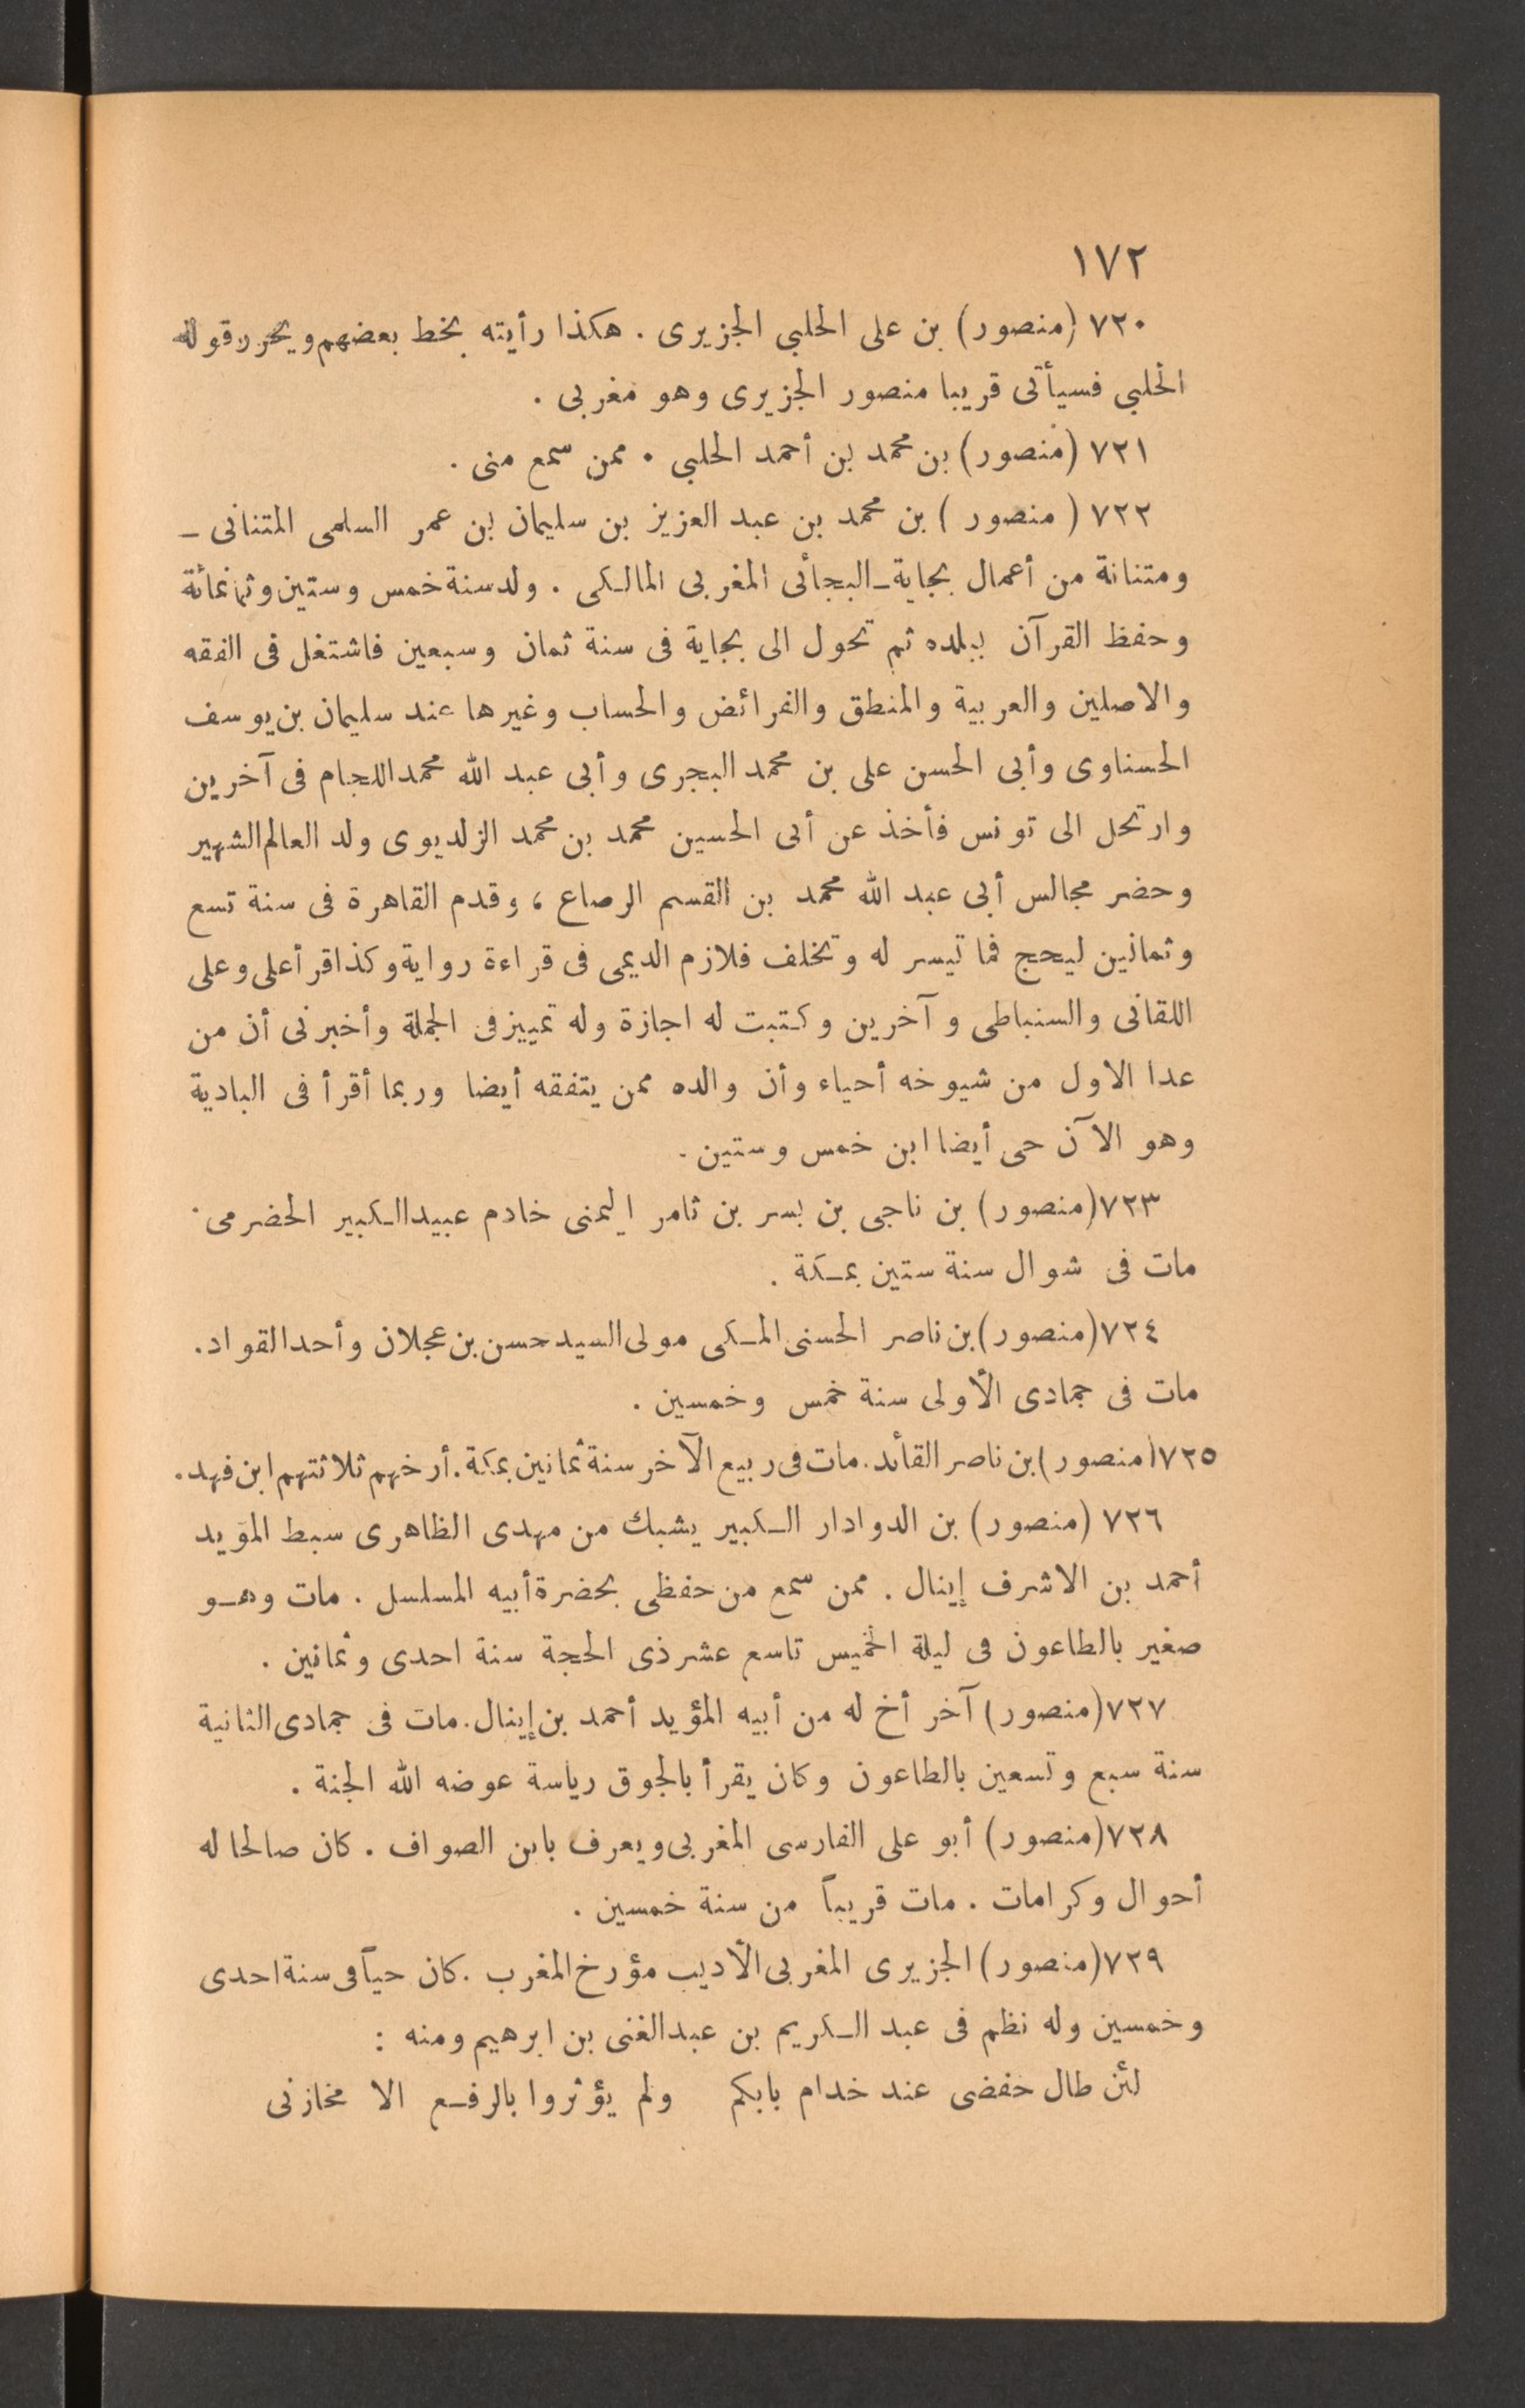 ١٧٢
٧٢٠ (منصور) بن على الحلبي الجزيرى . هكذا رأيته بخط بعضهم ويحرر قوله
الحلبي فسيأتى قريبا منصور الجزيرى وهو مغربى .
٧٢١ (منصور) بن محمد بن أحمد الحلبي . ممن سمع منى .
٧٢٢ ( منصور ) بن محمد بن عبد العزيز بن سليمان بن عمر السلمى المتنانى ـ
ومتنانة من أعمال بجاية ـ البجأئى المغربى المالكى . ولد سنة خمس وستين وثمانمائة
وحفظ القرآن ببلده ثم تحول الى بجاية فى سنة ثمان وسبعين فاشتغل فى الفقه
والاصلين والعربية والمنطق والفرائض والحساب وغيرها عند سليمان بن يوسف
الحسناوى وأبى الحسن على بن محمد البجرى وأبى عبد الله محمد اللجام فى آخرين
وارتحل الى تونس فأخذ عن أبى الحسين محمد بن محمد الزلديوى ولد العالم الشهير
وحضر مجالس أبى عبد الله محمد بن القسم الرصاع ، وقدم القاهرة فى سنة تسع
وثمانين ليحج فما تيسر له وتخلف فلازم الديمى فى قراءة رواية وكذا قرأ على وعلى
اللقانى والسنباطى و آخرين وكتبت له اجازة وله تمييز فى الجملة وأخبرنى أن من
عدا الاول من شيوخه أحياء وأن والده ممن يتفقه أيضا وربما أقرأ فى البادية
وهو الآن حى أيضا ابن خمس وستين .
٧٢٣ (منصور) بن ناجى بن بسر بن ثامر اليمنى خادم عبيد الكبير الحضرمى .
مات فى شوال سنة ستين بمكة .
٧٢٤ (منصور) بن ناصر الحسنى المكى مولى السيد حسن بن عجلان وأحد القواد .
مات فى جمادى الأولى سنة خمس وخمسين .
٧٢٥ (منصور) بن ناصر القائد . مات فى ربيع الآخر سنة ثمانين بمكة . أرخهم ثلاثتهم ابن فهد .
٧٢٦ (منصور) بن الدوادار الكبير يشبك من مهدى الظاهرى سبط المؤيد
أحمد بن الاشرف إينال . ممن سمع من حفظى بحضرة أبيه المسلسل . مات وهو
صغير بالطاعون فى ليلة الخميس تاسع عشر ذى الحجة سنة احدى وثمانين .
٧٢٧ (منصور) آخر أخ له من أبيه المؤيد أحمد بن إينال . مات فى جمادى الثانية
سنة سبع وتسعين بالطاعون وكان يقرأ بالجوق رياسة عوضه الله الجنة .
٧٢٨ (منصور) أبو على الفارسى المغربى ويعرف بابن الصواف . كان صالحا له
أحوال وكرامات . مات قريباً من سنة خمسين .
٧٢٩ (منصور) الجزيرى المغربى الأديب مؤرخ المغرب . كان حياً فى سنة احدى
وخمسين وله نظم فى عبد الكريم بن عبد الغنى بن ابرهيم ومنه :
لئن طال حفضى عند خدام بابكم ولم يؤثروا بالرفع الا مخازنى